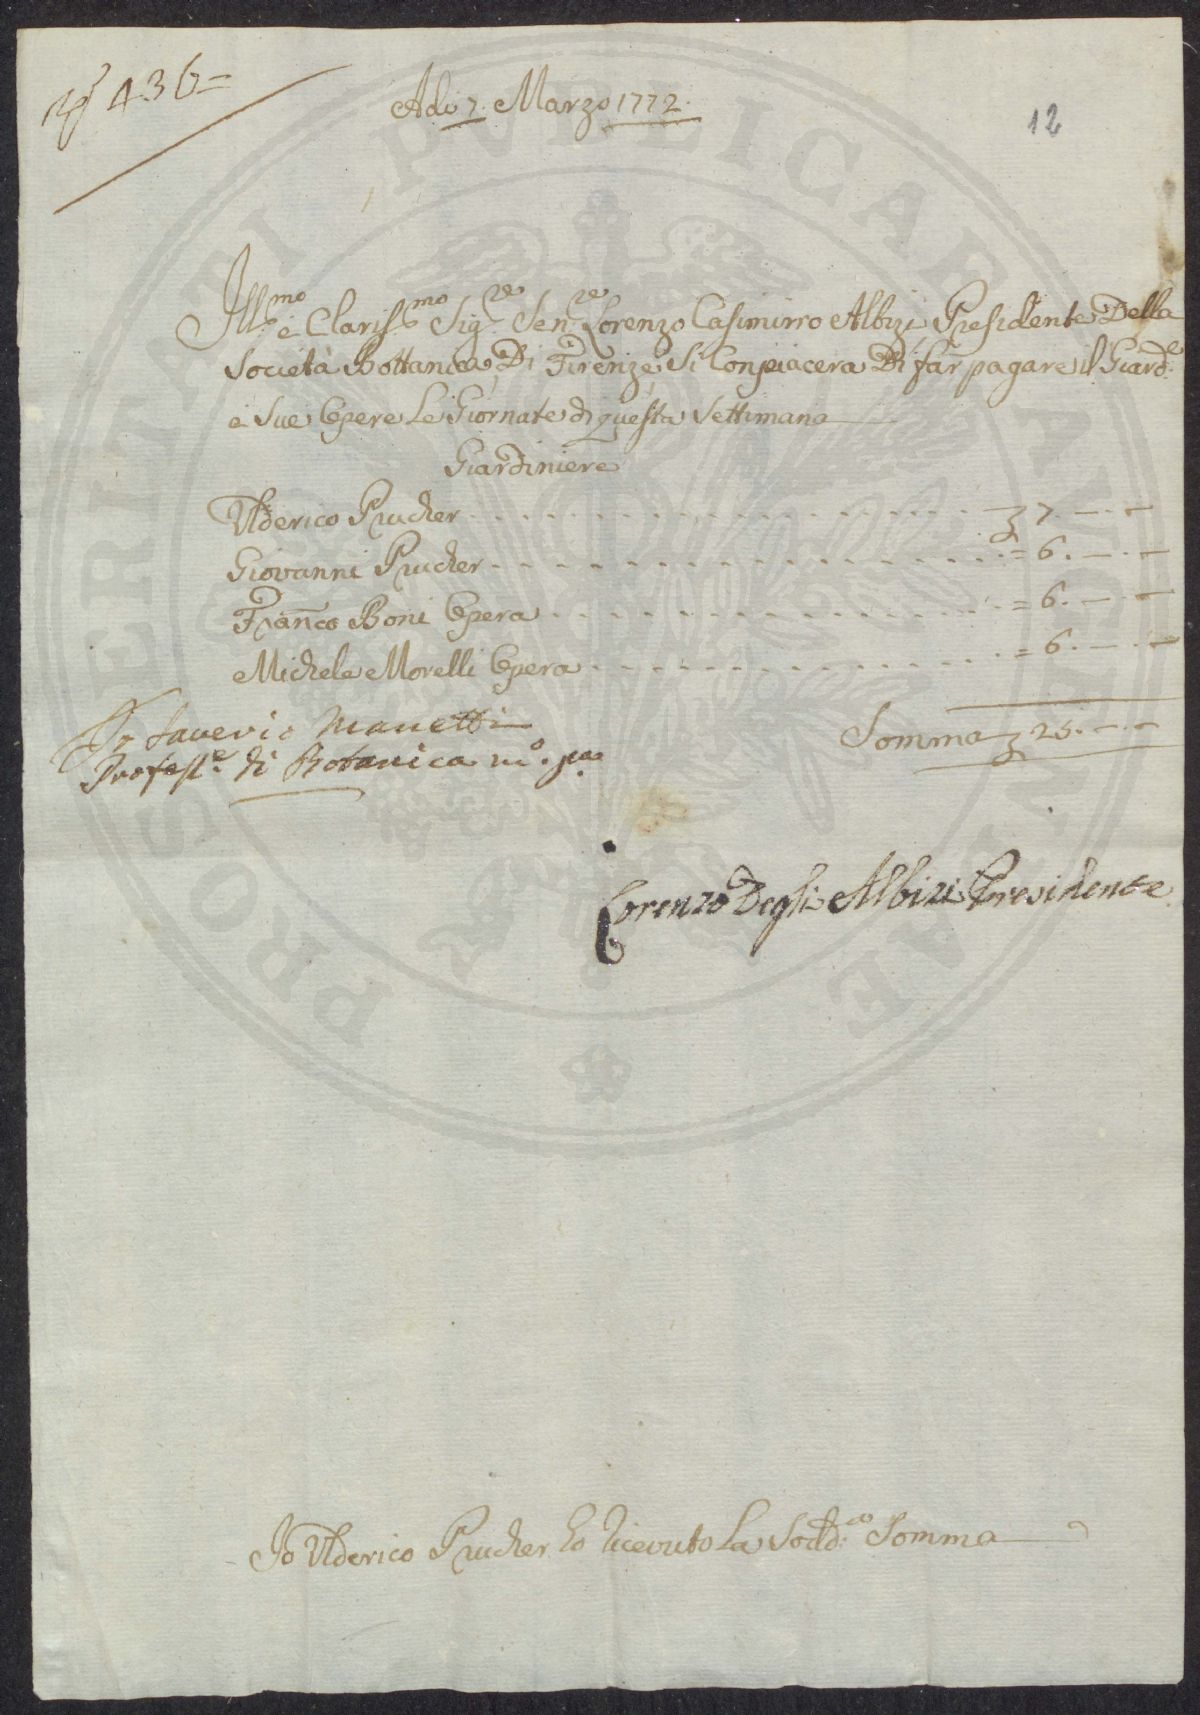 N.º 436=
Adì 7. Marzo 1772.
12
Ill.mo e Clariss.mo Sig.re Sen.re Lorenzo Casimirro Albizi Presidente Della
Società Bottanica Di Firenze Si Conpiacera Di far pagare il Giard.e
e Sue Opere Le Giornate di questa Settimana
Giardiniere
Ulderico Prucher 7. — . —
Giovanni Prucher = 6. — . —
Fran.co Boni Opera = 6. — . —
Michele Morelli Opera = 6. — . —
Somma 25. — . —
Dr Saverio Manetti
Profess.e di Botanica m.o p.a
Lorenzo Degli Albizi Presidente
Io Ulderico Prucher ho ricevuto La Sodd.a Somma
PROSPERITATI PVBLICAE AVGENDAE